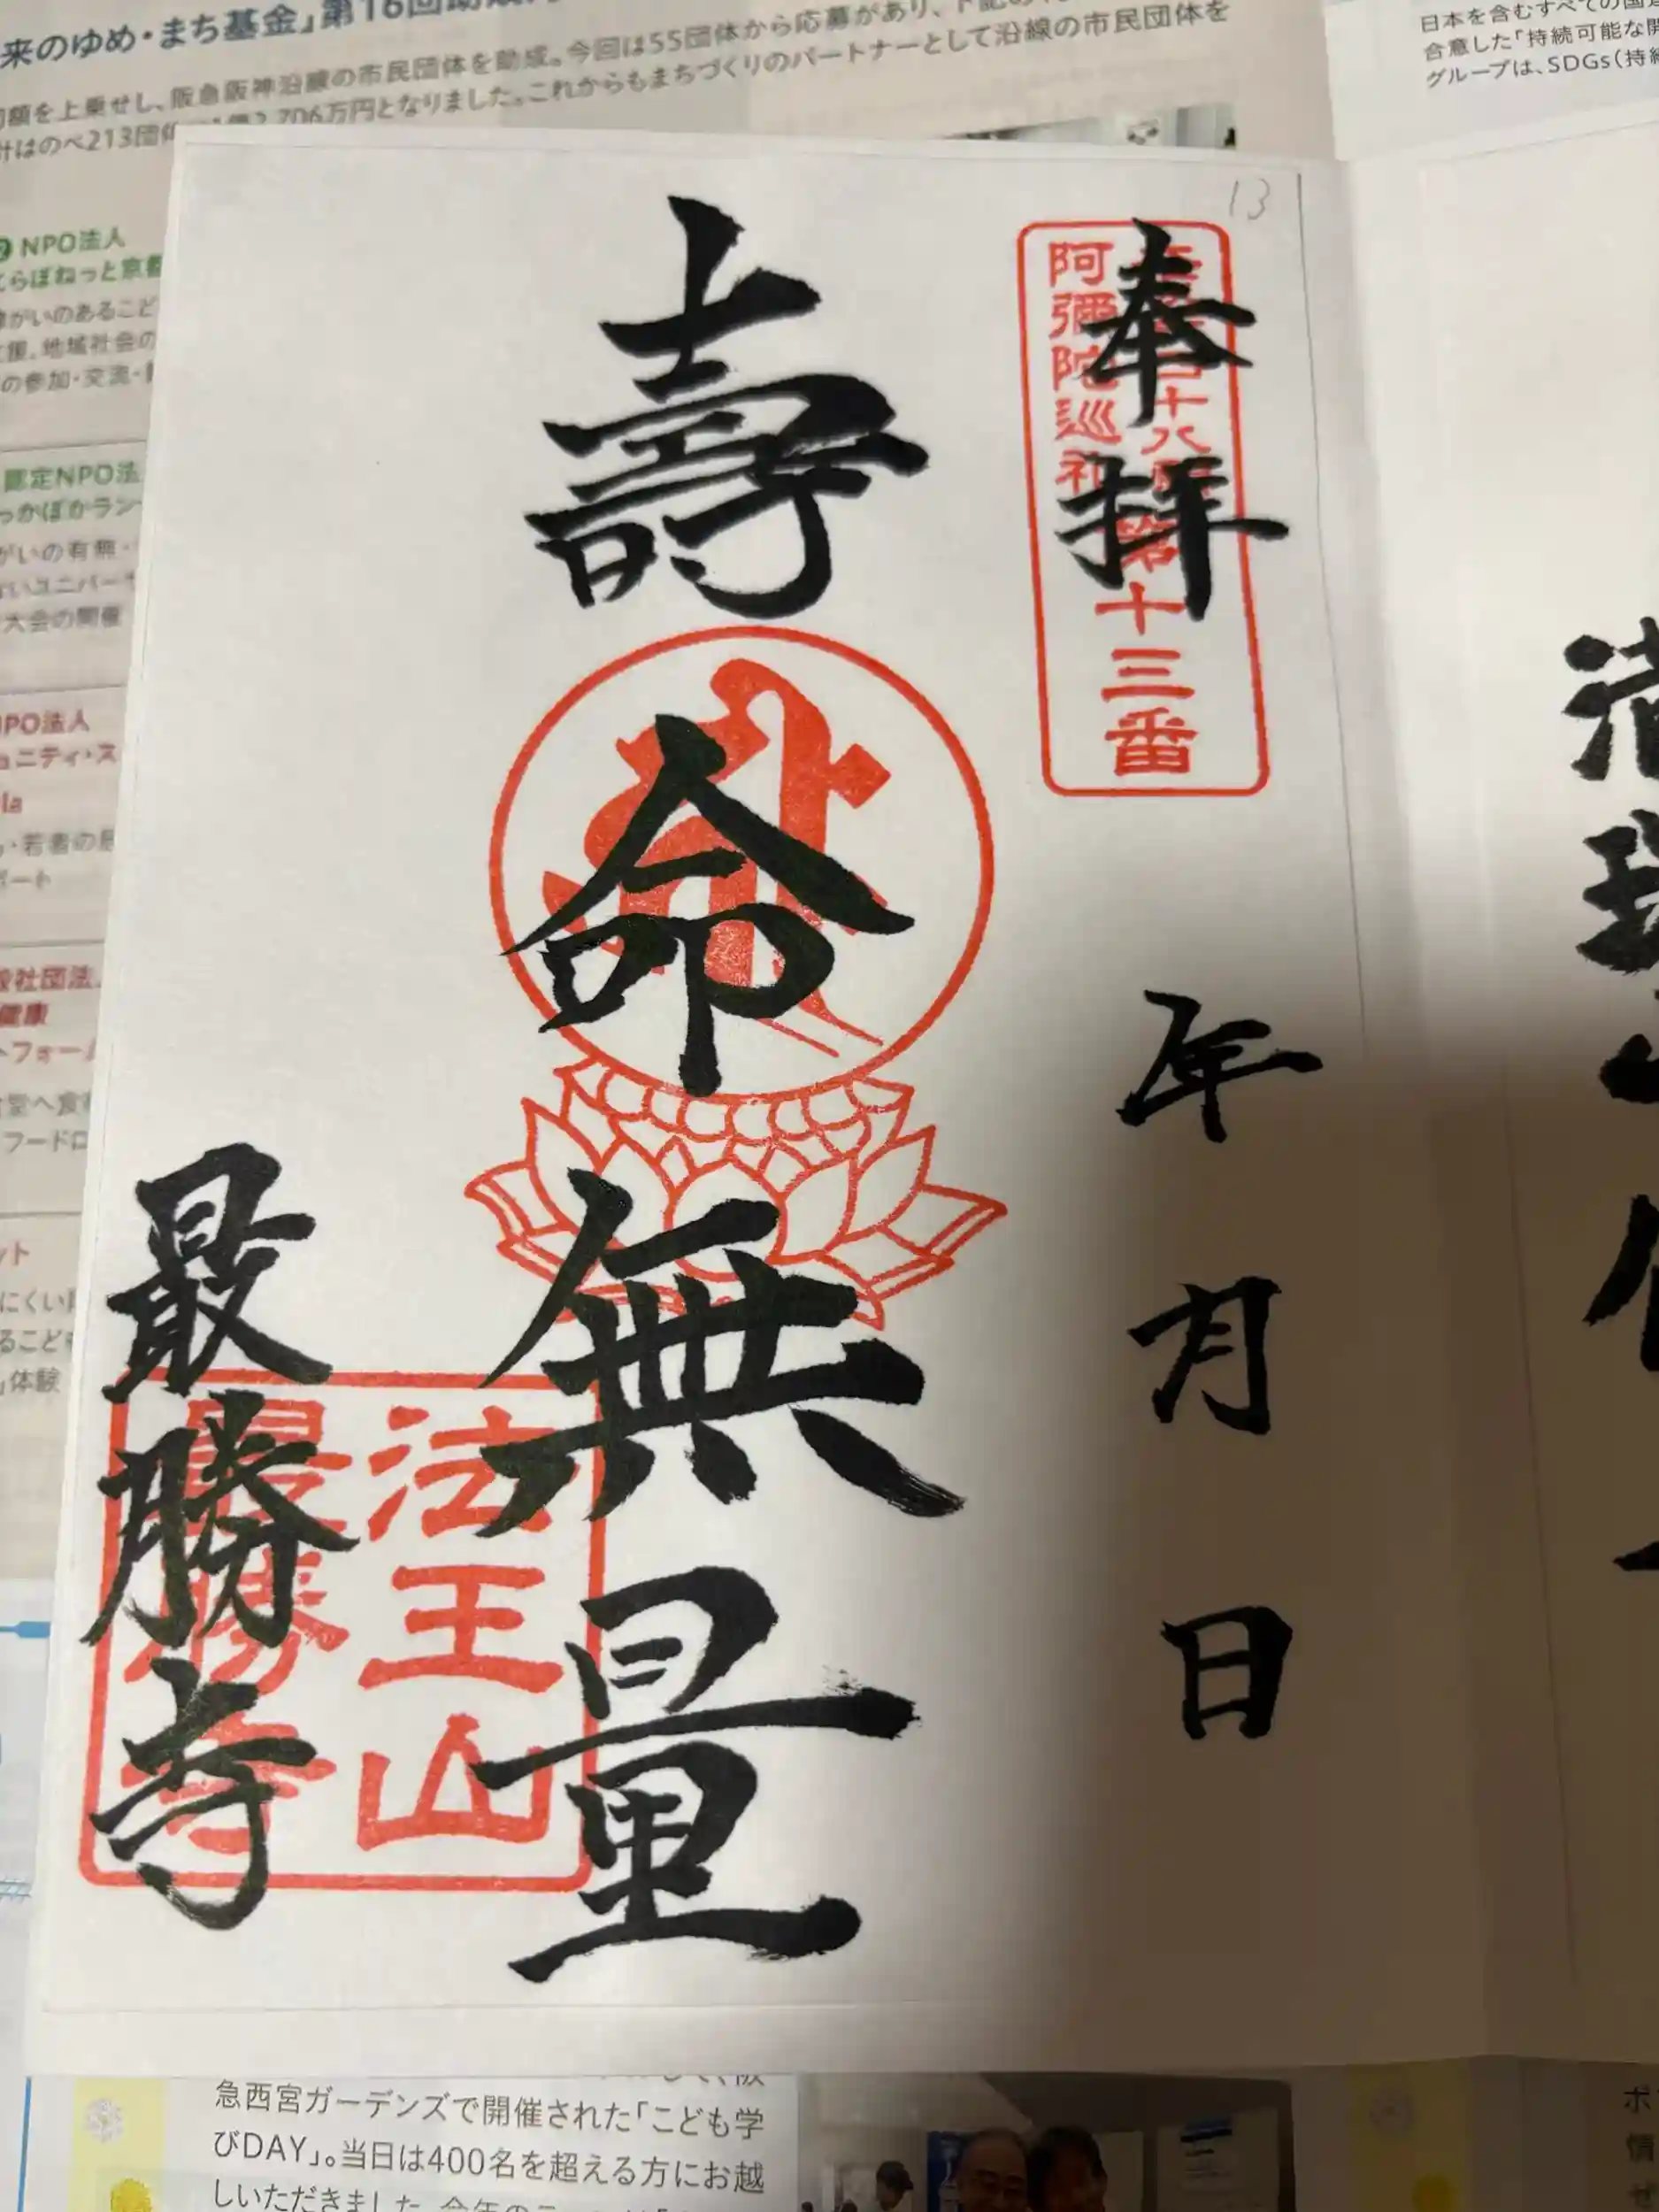 来のゆめ・まち基金」第16回助成
額を上乗せし、阪急阪神沿線の市民団体を助成。今回は55団体から応募があり、
計はのべ213団体 2,706万円となりました。これからもまちづくりのパートナーとして沿線の市民団体を
日本を含むすべての国
合意した「持続可能な開
グループは、SDGs(持続
13
奉拝
阿彌陀巡礼
十八願
第十三番
年
月
日
壽命無量
最勝寺
法王山
最勝寺
NPO法人
らぽねっと京都
がいのあるこど
援。地域社会の
の参加・交流・
認定NPO法
っかぽかラン
がいの有無・
ないユニバー
大会の開催
NPO法人
ュニティ・ス
la
・若者の居
ポート
般社団法
健康
フォー
堂へ食
フードロ
ット
にくい
るこども
」体験
急西宮ガーデンズで開催された「こども学
びDAY」。当日は400名を超える方にお越
しいただきました。今年の